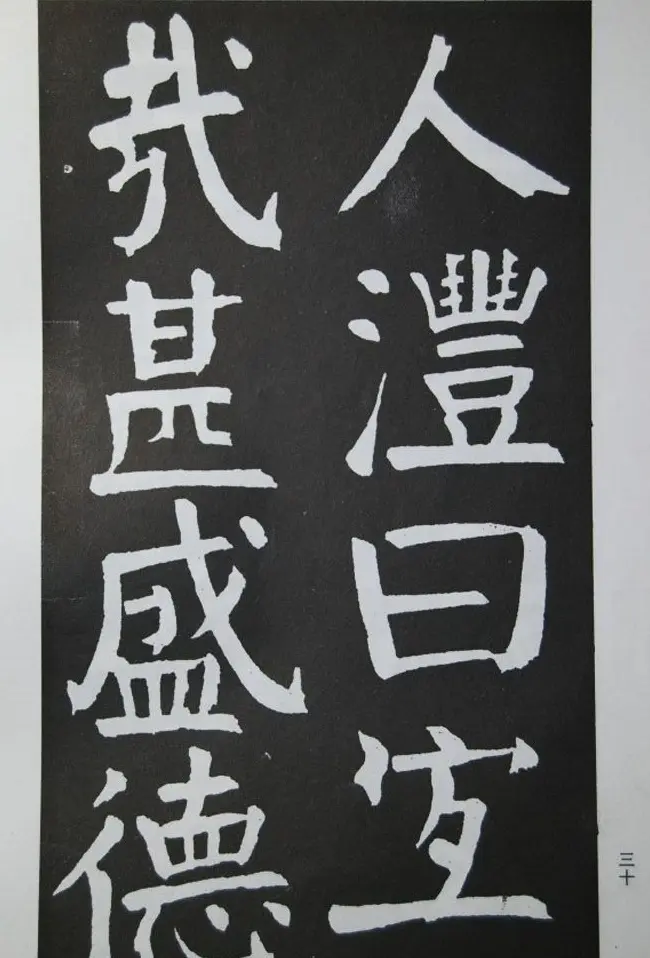 人澧曰宜
哉甚盛德
三十